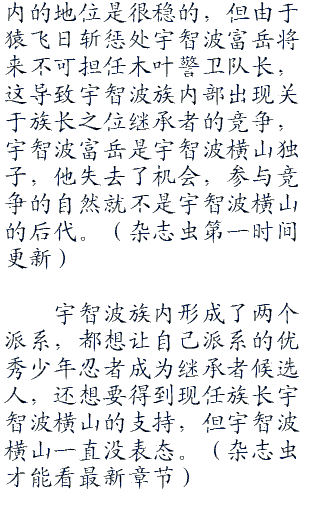 内的地位是很稳的，但由于
猿飞日斩惩处宇智波富岳将
来不可担任木叶警卫队长，
这导致宇智波族内部出现关
于族长之位继承者的竞争，
宇智波富岳是宇智波横山独
子，他失去了机会，参与竞
争的自然就不是宇智波横山
的后代。（杂志虫第一时间
更新）
宇智波族内形成了两个
派系，都想让自己派系的优
秀少年忍者成为继承者候选
人，还想要得到现任族长宇
智波横山的支持，但宇智波
横山一直没表态。（杂志虫
才能看最新章节）